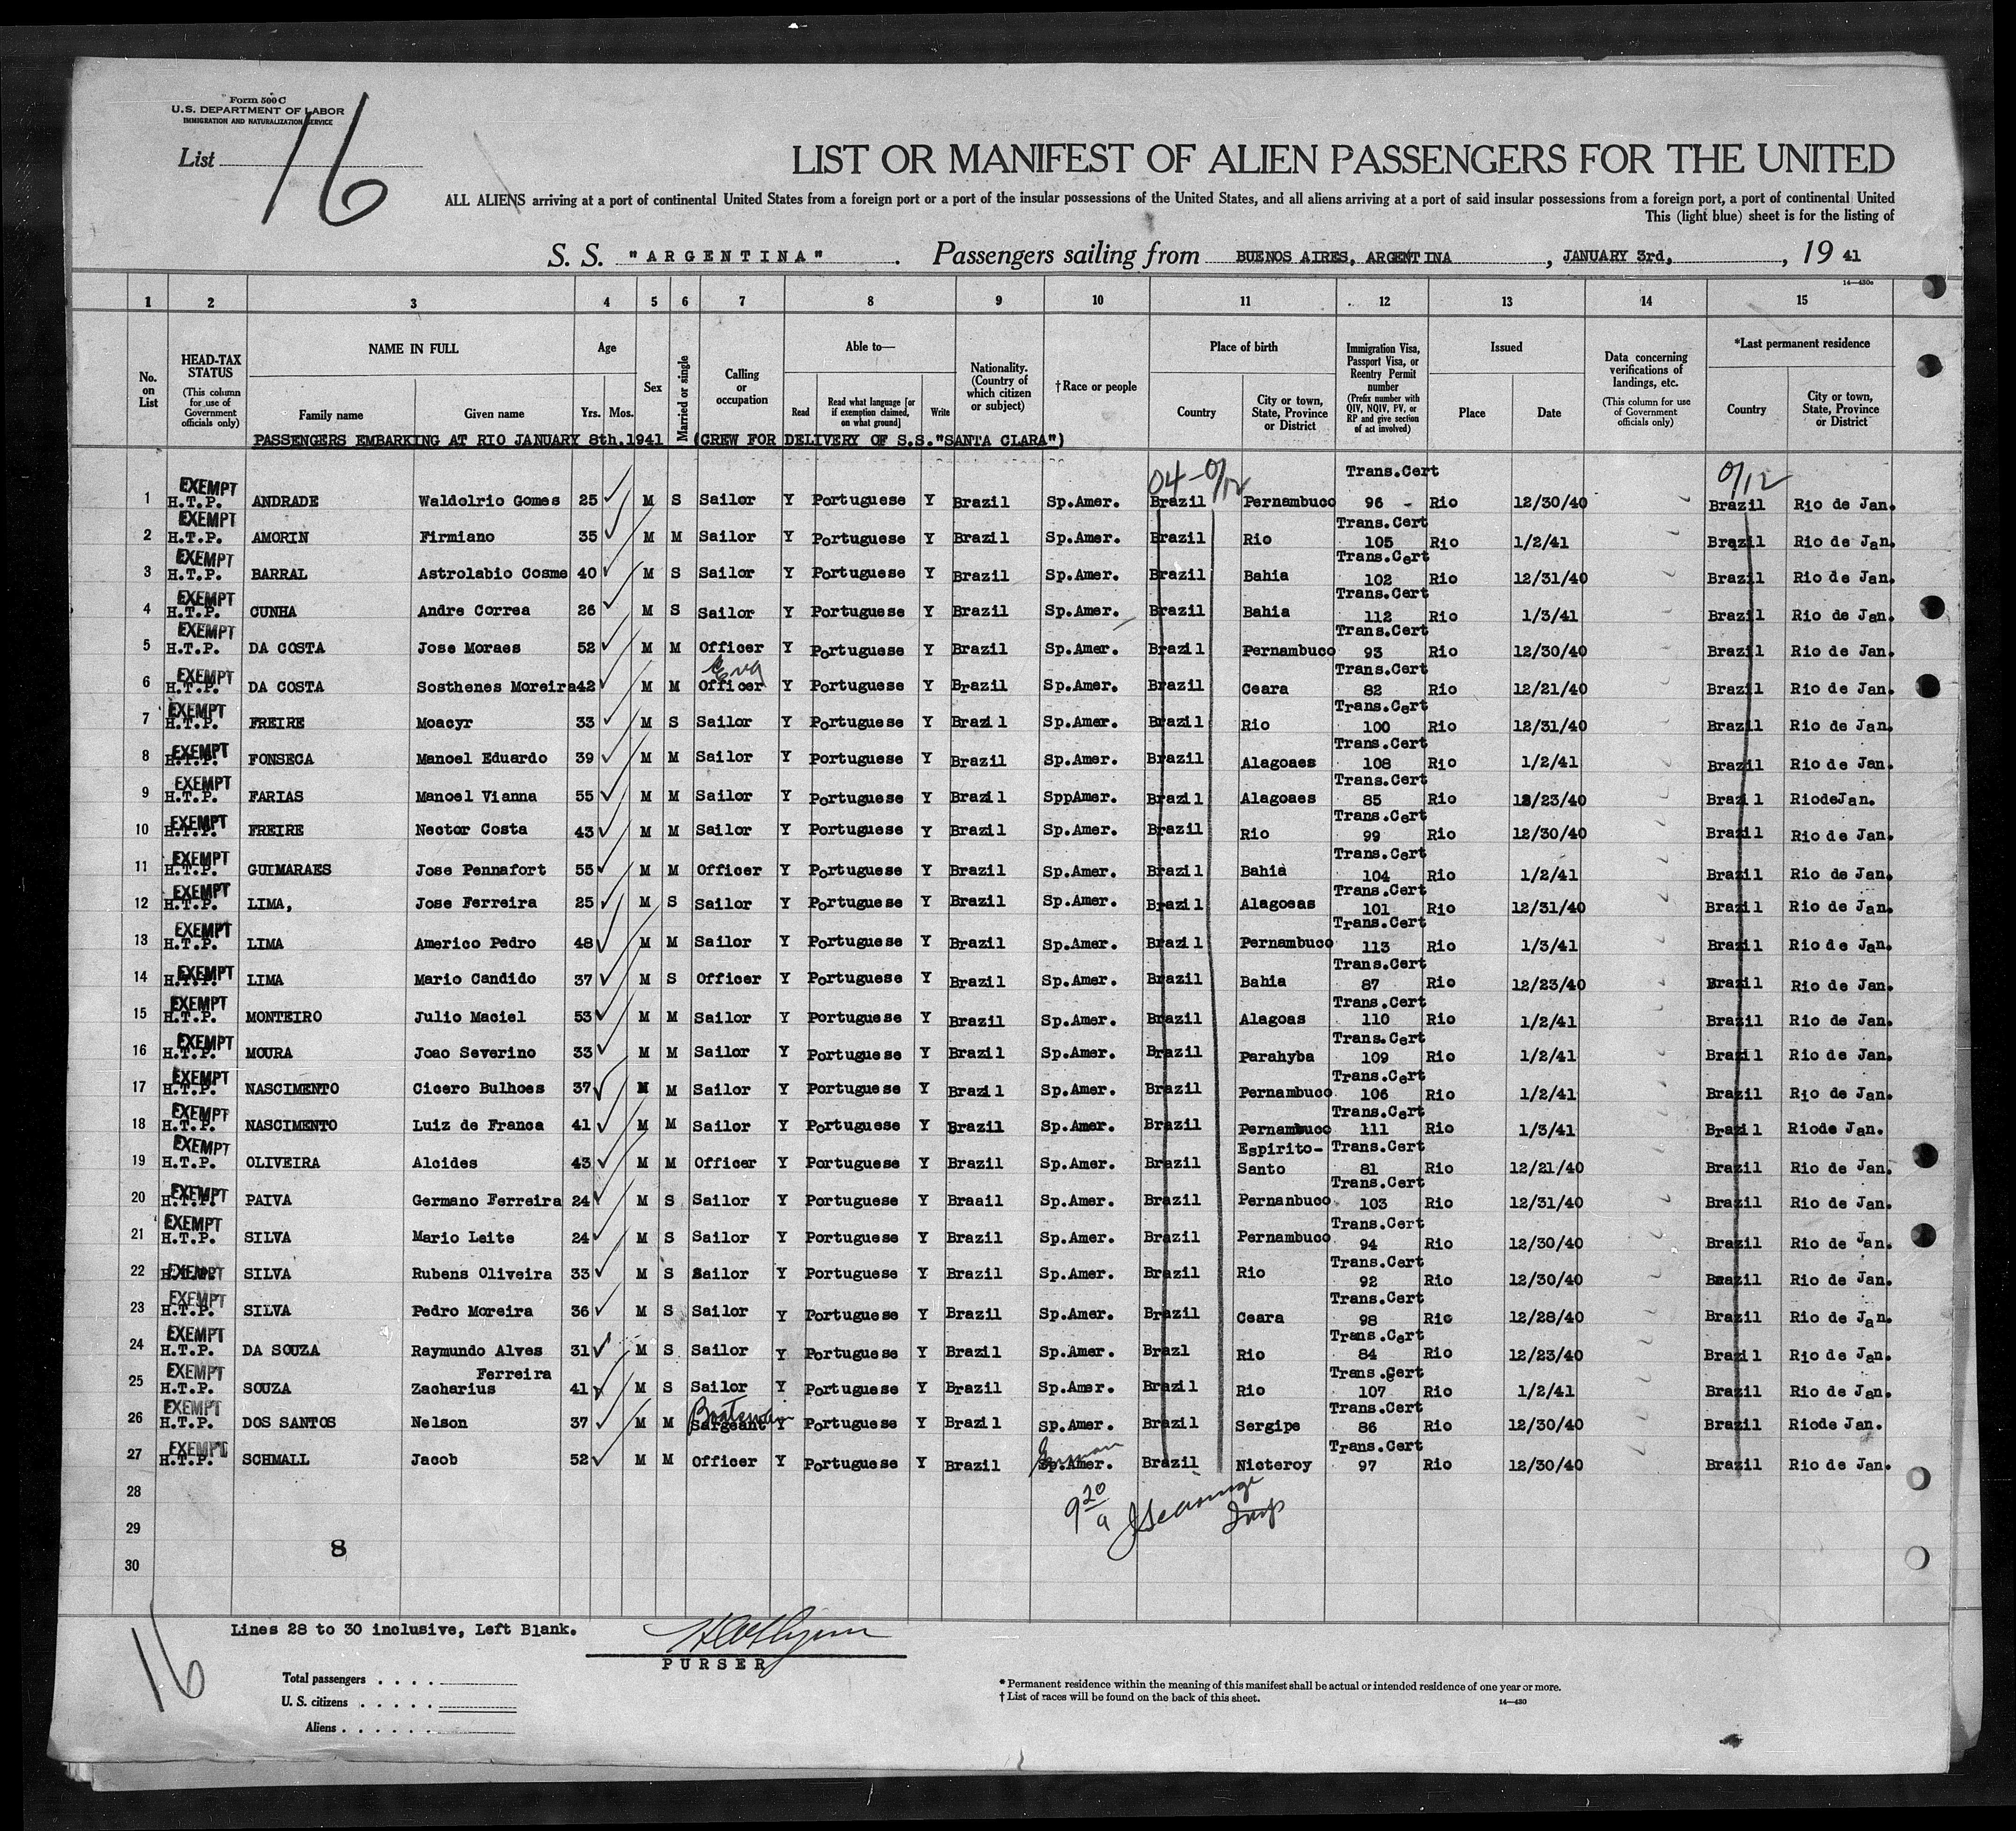 Form 500 C
U.S. DEPARTMENT OF LABOR
IMMIGRATION AND NATURALIZATION SERVICE
List 16
LIST OR MANIFEST OF ALIEN PASSENGERS FOR THE UNITED
ALL ALIENS arriving at a port of continental United States from a foreign port or a port of the insular possessions of the United States, and all aliens arriving at a port of said insular possessions from a foreign port, a port of continental United
This (light blue) sheet is for the listing of
S. S. "ARGENTINA". Passengers sailing from BUENOS AIRES, ARGENTINA, JANUARY 3rd, , 19 41
14—430c
1 2 3 4 5 6 7 8 9 10 11 12 13 14 15
No. on List
HEAD-TAX STATUS (This column for use of Government officials only)
NAME IN FULL Family name Given name
Age Yrs. Mos.
Sex
Married or single
Calling or occupation
Able to— Read Read what language [or if exemption claimed, on what ground] Write
Nationality. (Country of which citizen or subject)
† Race or people
Place of birth Country City or town, State, Province or District
Immigration Visa, Passport Visa, or Reentry Permit number (Prefix number with QIV, NQIV, PV, or RP and give section of act involved)
Issued Place Date
Data concerning verifications of landings, etc. (This column for use of Government officials only)
*Last permanent residence Country City or town, State, Province or District
PASSENGERS EMBARKING AT RIO JANUARY 8th.1941 (CREW FOR DELIVERY OF S.S."SANTA CLARA")
04-0/12 0/12
1 EXEMPT H.T.P. ANDRADE Waldolrio Gomes 25 M S Sailor Y Portuguese Y Brazil Sp.Amer. Brazil Pernambuco Trans.Cert 96 - Rio 12/30/40 Brazil Rio de Jan.
2 EXEMPT H.T.P. AMORIN Firmiano 35 M M Sailor Y Portuguese Y Brazil Sp.Amer. Brazil Rio Trans.Cert 105 Rio 1/2/41 Brazil Rio de Jan.
3 EXEMPT H.T.P. BARRAL Astrolabio Cosme 40 M S Sailor Y Portuguese Y Brazil Sp.Amer. Brazil Bahia Trans.Cert 102 Rio 12/31/40 Brazil Rio de Jan.
4 EXEMPT H.T.P. CUNHA Andre Correa 26 M S Sailor Y Portuguese Y Brazil Sp.Amer. Brazil Bahia Trans.Cert 112 Rio 1/3/41 Brazil Rio de Jan.
5 EXEMPT H.T.P. DA COSTA Jose Moraes 52 M M Officer Y Portuguese Y Brazil Sp.Amer. Brazil Pernambuco Trans.Cert 93 Rio 12/30/40 Brazil Rio de Jan.
6 EXEMPT H.T.P. DA COSTA Sosthenes Moreira 42 M M Eng Officer Y Portuguese Y Brazil Sp.Amer. Brazil Ceara Trans.Cert 82 Rio 12/21/40 Brazil Rio de Jan.
7 EXEMPT H.T.P. FREIRE Moacyr 33 M S Sailor Y Portuguese Y Brazil Sp.Amer. Brazil Rio Trans.Cert 100 Rio 12/31/40 Brazil Rio de Jan.
8 EXEMPT H.T.P. FONSECA Manoel Eduardo 39 M M Sailor Y Portuguese Y Brazil Sp.Amer. Brazil Alagoaes Trans.Cert 108 Rio 1/2/41 Brazil Rio de Jan.
9 EXEMPT H.T.P. FARIAS Manoel Vianna 55 M M Sailor Y Portuguese Y Brazil SppAmer. Brazil Alagoaes Trans.Cert 85 Rio 12/23/40 Brazil RiodeJan.
10 EXEMPT H.T.P. FREIRE Nector Costa 43 M M Sailor Y Portuguese Y Brazil Sp.Amer. Brazil Rio Trans.Cert 99 Rio 12/30/40 Brazil Rio de Jan.
11 EXEMPT H.T.P. GUIMARAES Jose Pennafort 55 M M Officer Y Portuguese Y Brazil Sp.Amer. Brazil Bahia Trans.Cert 104 Rio 1/2/41 Brazil Rio de Jan.
12 EXEMPT H.T.P. LIMA, Jose Ferreira 25 M S Sailor Y Portuguese Y Brazil Sp.Amer. Brazil Alagoeas Trans.Cert 101 Rio 12/31/40 Brazil Rio de Jan.
13 EXEMPT H.T.P. LIMA Americo Pedro 48 M M Sailor Y Portuguese Y Brazil Sp.Amer. Brazil Pernambuco Trans.Cert 113 Rio 1/3/41 Brazil Rio de Jan.
14 EXEMPT H.T.P. LIMA Mario Candido 37 M S Officer Y Portuguese Y Brazil Sp.Amer. Brazil Bahia Trans.Cert 87 Rio 12/23/40 Brazil Rio de Jan.
15 EXEMPT H.T.P. MONTEIRO Julio Maciel 53 M M Sailor Y Portuguese Y Brazil Sp.Amer. Brazil Alagoas Trans.Cert 110 Rio 1/2/41 Brazil Rio de Jan.
16 EXEMPT H.T.P. MOURA Joao Severino 33 M M Sailor Y Portuguese Y Brazil Sp.Amer. Brazil Parahyba Trans.Cert 109 Rio 1/2/41 Brazil Rio de Jan.
17 EXEMPT H.T.P. NASCIMENTO Cicero Bulhoes 37 M M Sailor Y Portuguese Y Brazil Sp.Amer. Brazil Pernambuco Trans.Cert 106 Rio 1/2/41 Brazil Rio de Jan.
18 EXEMPT H.T.P. NASCIMENTO Luiz de Franca 41 M M Sailor Y Portuguese Y Brazil Sp.Amer. Brazil Pernambuco Trans.Cert 111 Rio 1/3/41 Brazil Riode Jan.
19 EXEMPT H.T.P. OLIVEIRA Alcides 43 M M Officer Y Portuguese Y Brazil Sp.Amer. Brazil Espirito-Santo Trans.Cert 81 Rio 12/21/40 Brazil Rio de Jan.
20 EXEMPT H.T.P. PAIVA Germano Ferreira 24 M S Sailor Y Portuguese Y Braail Sp.Amer. Brazil Pernanbuco Trans.Cert 103 Rio 12/31/40 Brazil Rio de Jan.
21 EXEMPT H.T.P. SILVA Mario Leite 24 M S Sailor Y Portuguese Y Brazil Sp.Amer. Brazil Pernambuco Trans.Cert 94 Rio 12/30/40 Brazil Rio de Jan.
22 EXEMPT H.T.P. SILVA Rubens Oliveira 33 M S Sailor Y Portuguese Y Brazil Sp.Amer. Brazil Rio Trans.Cert 92 Rio 12/30/40 Brazil Rio de Jan.
23 EXEMPT H.T.P. SILVA Pedro Moreira 36 M S Sailor Y Portuguese Y Brazil Sp.Amer. Brazil Ceara Trans.Cert 98 Rio 12/28/40 Brazil Rio de Jan.
24 EXEMPT H.T.P. DA SOUZA Raymundo Alves 31 M S Sailor Y Portuguese Y Brazil Sp.Amer. Brazl Rio Trans.Cert 84 Rio 12/23/40 Brazil Rio de Jan.
25 EXEMPT H.T.P. SOUZA Zacharius Ferreira 41 M S Sailor Y Portuguese Y Brazil Sp.Amer. Brazil Rio Trans.Cert 107 Rio 1/2/41 Brazil Rio de Jan.
26 EXEMPT H.T.P. DOS SANTOS Nelson 37 M M Boatswain Sargeant Y Portuguese Y Brazil Sp.Amer. Brazil Sergipe Trans.Cert 86 Rio 12/30/40 Brazil Riode Jan.
27 EXEMPT H.T.P. SCHMALL Jacob 52 M M Officer Y Portuguese Y Brazil German Sp.Amer. Brazil Nicteroy Trans.Cert 97 Rio 12/30/40 Brazil Rio de Jan.
28
29
30
8
9 20 a Insp
Lines 28 to 30 inclusive, Left Blank.
PURSER
16
Total passengers
U. S. citizens
Aliens
* Permanent residence within the meaning of this manifest shall be actual or intended residence of one year or more.
† List of races will be found on the back of this sheet.
14—430